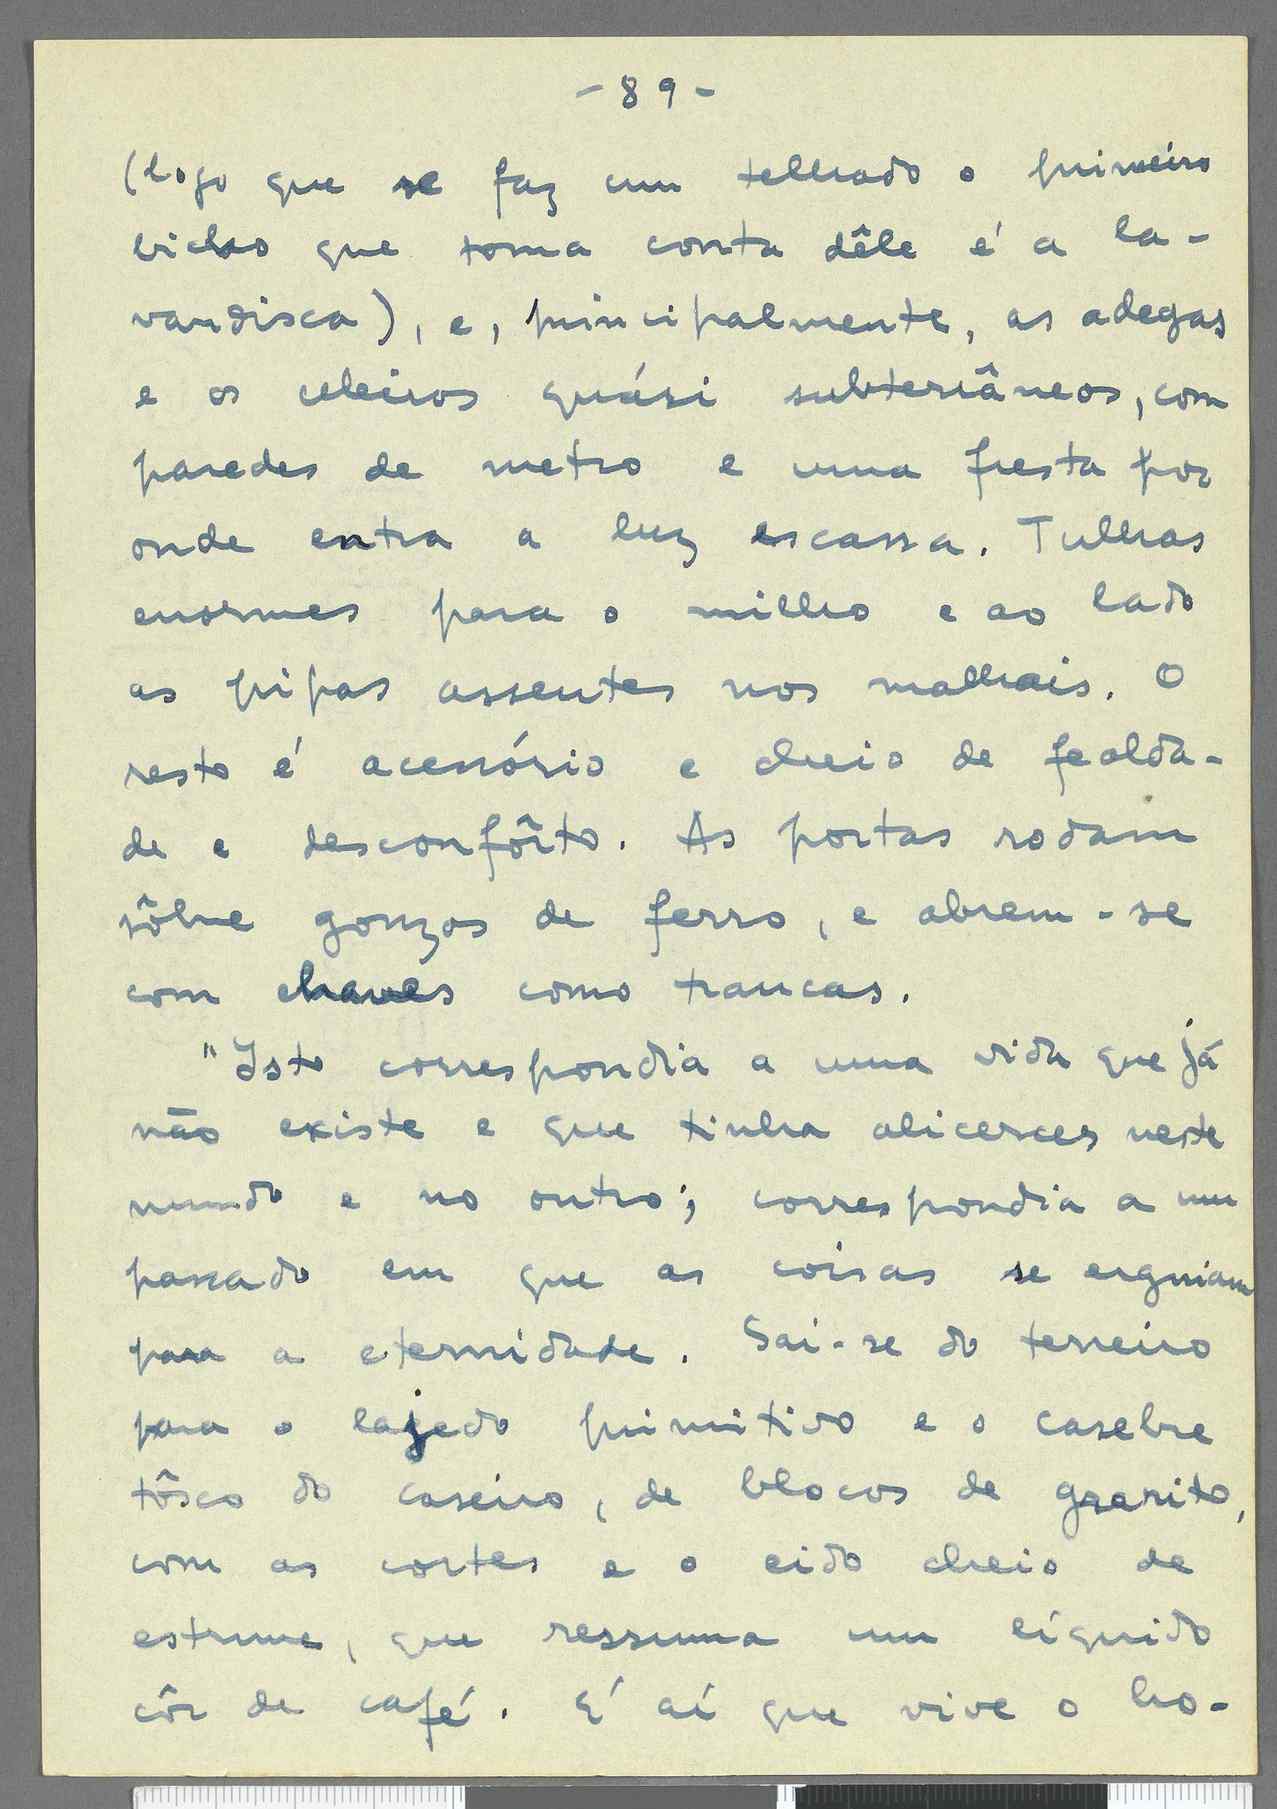 - 89 -
(logo que se faz um telhado o primeiro
bicho que toma conta dêle é a la-
vandisca), e, principalmente, as adegas
e os celeiros quási subterrâneos, com
paredes de metro e uma fresta por
onde entra a luz escassa. Tulhas
enormes para o milho e ao lado
as pipas assentes nos malhais. O
resto é acessório e cheio de fealda-
de e desconfôrto. As portas rodam
sôbre gonzos de ferro, e abrem-se
com chaves como trancas.
"Isto correspondia a uma vida que já
não existe e que tinha alicerces neste
mundo e no outro; correspondia a um
passado em que as coisas se erguiam
para a eternidade. Sai-se do terreiro
para o lajedo primitivo e o casebre
tôsco do caseiro, de blocos de granito,
com as cortes e o eido cheio de
estrume, que ressuma um líquido
côr de café. É aí que vive o ho-